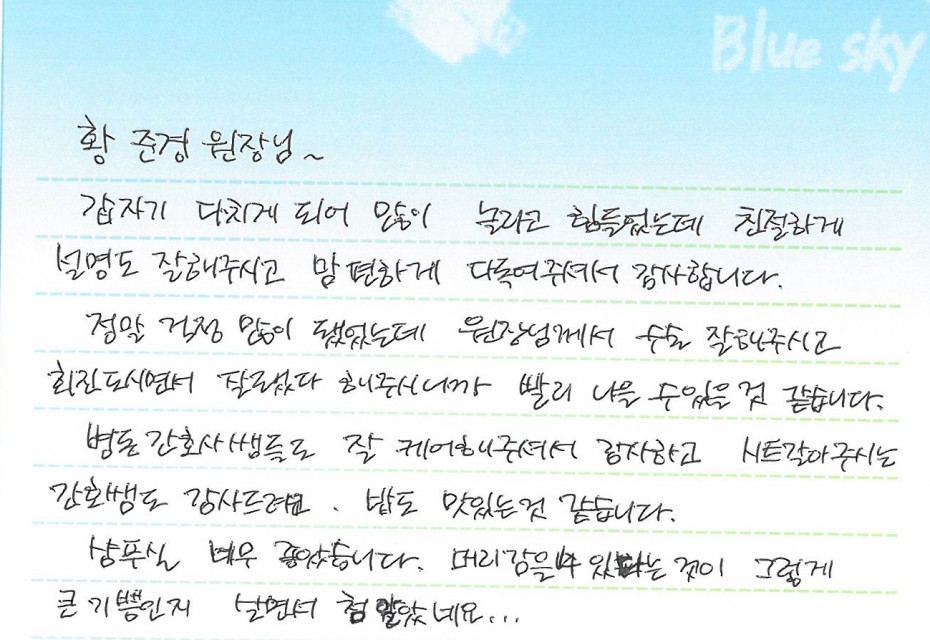 Blue sky
황 준경 원장님~
갑자기 다치게 되어 많이 놀라고 힘들었는데 친절하게
설명도 잘해주시고 맘 편하게 다독여주셔서 감사합니다.
정말 걱정 많이 됐었는데 원장님께서 수술 잘해주시고
회진도시면서 잘되었다 해주시니까 빨리 나을 수있을것 같습니다.
병동간호사쌤들도 잘 케어해주셔서 감사하고 시트갈아주시는
간호쌤도 감사드려요. 밥도 맛있는것 같습니다.
샴푸실 매우 좋았습니다. 머리감을수 있다는 것이 그렇게
큰기쁨인지 살면서 첨 알았네요...